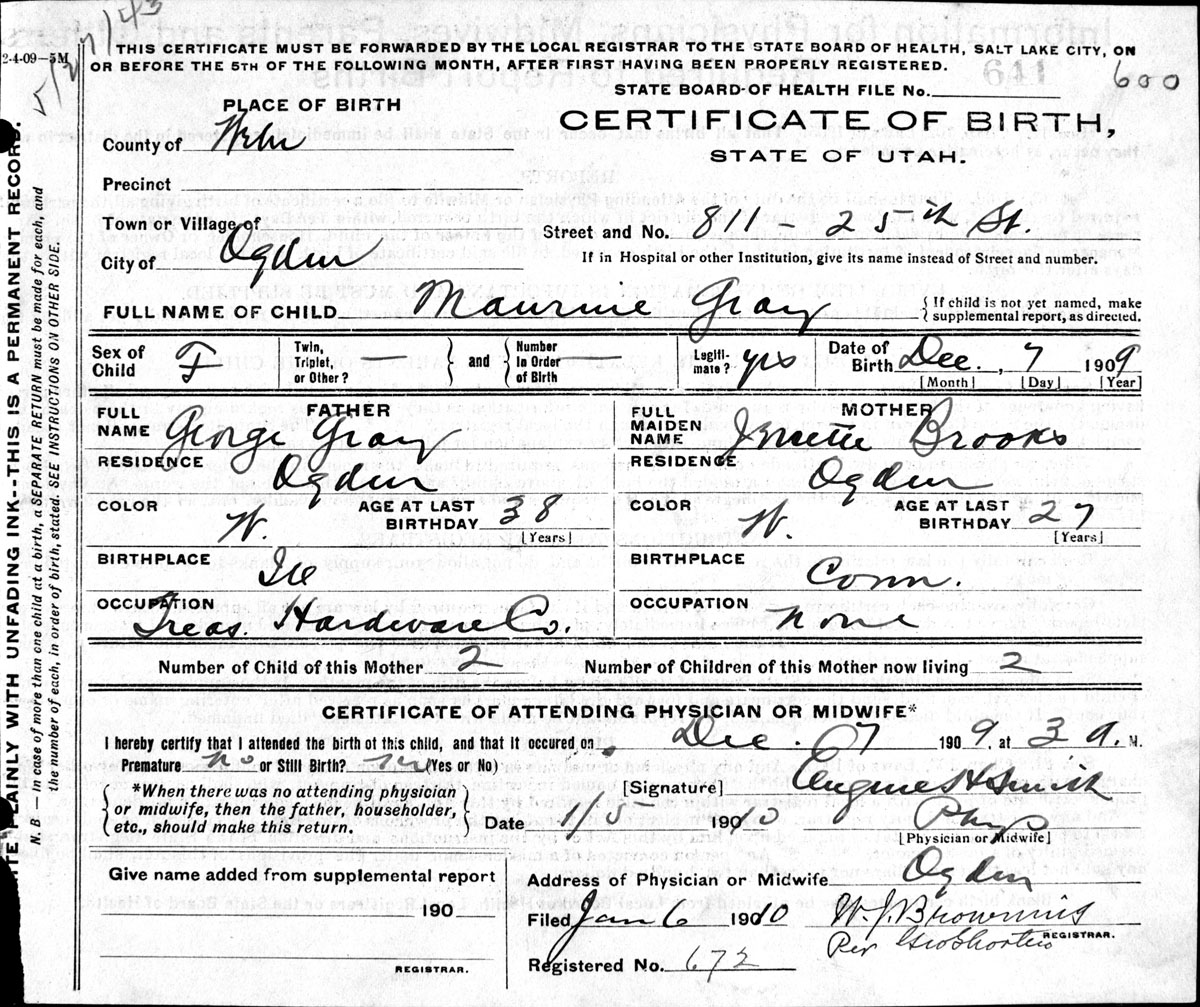 THIS CERTIFICATE MUST BE FORWARDED BY THE LOCAL REGISTRAR TO THE STATE BOARD OF HEALTH, SALT LAKE CITY, ON
OR BEFORE THE 5TH OF THE FOLLOWING MONTH, AFTER FIRST HAVING BEEN PROPERLY REGISTERED.
2-4-09—5M
143
641
600
STATE BOARD OF HEALTH FILE No.
PLACE OF BIRTH
CERTIFICATE OF BIRTH,
STATE OF UTAH.
County of
Precinct
Town or Village of
City of Ogden
Street and No. 811 - 25th St.
If in Hospital or other Institution, give its name instead of Street and number.
FULL NAME OF CHILD Maurine Gray
{ If child is not yet named, make
supplemental report, as directed.
Sex of Child F
Twin, Triplet, or Other? —
and
Number In Order of Birth —
Legiti-mate? yes
Date of Birth Dec. 7 1909
[Month] [Day] [Year]
FATHER
FULL NAME George Gray
RESIDENCE Ogden
COLOR W.
AGE AT LAST BIRTHDAY 38
[Years]
BIRTHPLACE
OCCUPATION Treas. Hardware Co.
MOTHER
FULL MAIDEN NAME Brooks
RESIDENCE Ogden
COLOR W.
AGE AT LAST BIRTHDAY 27
[Years]
BIRTHPLACE Conn.
OCCUPATION None
Number of Child of this Mother 2
Number of Children of this Mother now living 2
CERTIFICATE OF ATTENDING PHYSICIAN OR MIDWIFE*
I hereby certify that I attended the birth of this child, and that it occured on Dec. 7 1909, at 3 a. M.
Premature no or Still Birth? no (Yes or No)
*When there was no attending physician
or midwife, then the father, householder,
etc., should make this return.
[Signature] Eugene H Smith
Date 1/5 1910
Phys
[Physician or Midwife]
Give name added from supplemental report
190
REGISTRAR.
Address of Physician or Midwife Ogden
Filed Jan 6 1910
W. J. Browning
Per
REGISTRAR.
Registered No. 672
WRITE PLAINLY WITH UNFADING INK--THIS IS A PERMANENT RECORD.
N. B.—In case of more than one child at a birth, a SEPARATE RETURN must be made for each, and
the number of each, in order of birth, stated. SEE INSTRUCTIONS ON OTHER SIDE.